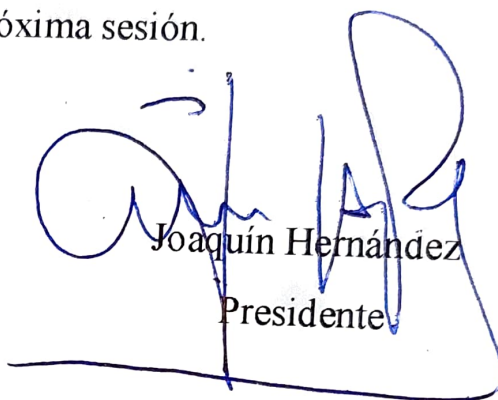 óxima sesión.
Joaquín Hernández
Presidente